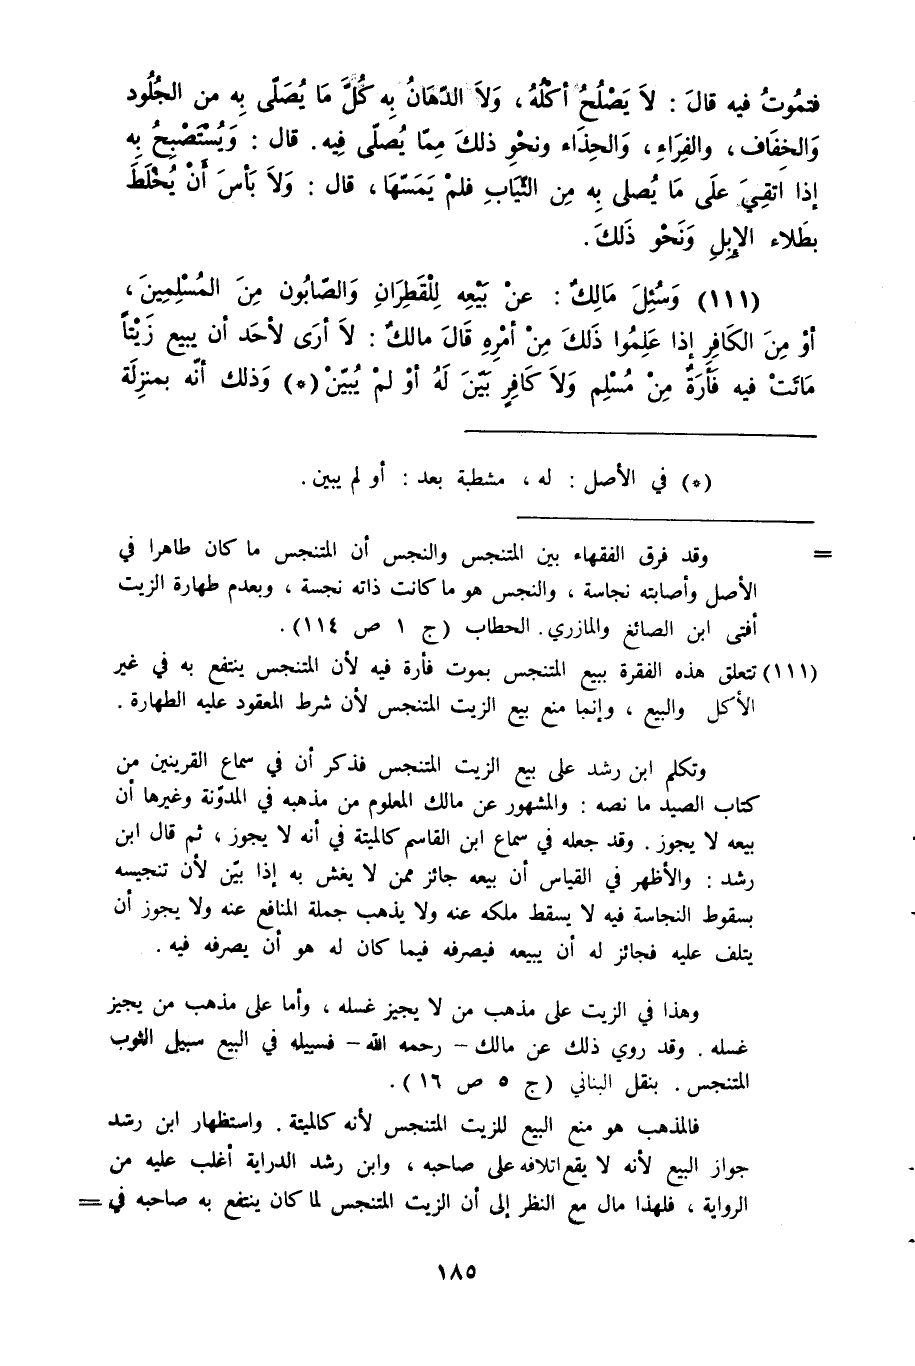 فتمُوتُ فيه قالَ : لاَ يَصْلُحُ أكْلُهُ ، وَلاَ الدّهَانُ بِه كُلَّ مَا يُصَلّى بِه من الجُلُود
وَالخِفَاف ، والفِرَاءِ ، وَالحِذَاء ونحْوِ ذلكَ مِمّا يُصلّى فِيه . قال : وَيُسْتَصْبِحُ بِه
إذا اتقِيَ علَى مَا يُصلى بِه مِن الثِّيَابِ فلمْ يَمَسّهَا ، قال : وَلاَ بَأسَ أَنْ يُخْلَطَ
بطَلاء الإبِلِ وَنَحْو ذَلكَ .
(١١١) وَسُئِلَ مَالِكٌ : عنْ بَيْعِه لِلْقَطِرَانِ وَالصّابُون مِنَ المُسْلِمِينَ ،
أوْ مِنَ الكَافِرِ إذا عَلِمُوا ذَلكَ مِنْ أمْرِهِ قَالَ مالكٌ : لاَ أرَى لأحَد أن يبيع زَيْتاً
مَاتَتْ فيه فَأرَةٌ مِنْ مُسْلِم وَلاَ كَافِرٍ بَيّنَ لَهُ أوْ لمْ يُبيّنْ (*) وَذلك أنّه بمنزِلَة
(*) في الأصل : له ، مشطبة بعد : أو لم يبين .
= وقد فرق الفقهاء بين المتنجس والنجس أن المتنجس ما كان طاهرا في
الأصل وأصابته نجاسة ، والنجس هو ما كانت ذاته نجسة ، وبعدم طهارة الزيت
أفتى ابن الصائغ والمازري . الحطاب (ج ١ ص ١١٤) .
(١١١) تتعلق هذه الفقرة ببيع المتنجس بموت فأرة فيه لأن المتنجس ينتفع به في غير
الأكل والبيع ، وإنما منع بيع الزيت المتنجس لأن شرط المعقود عليه الطهارة .
وتكلم ابن رشد على بيع الزيت المتنجس فذكر أن في سماع القرينين من
كتاب الصيد ما نصه : والمشهور عن مالك المعلوم من مذهبه في المدوّنة وغيرها أن
بيعه لا يجوز . وقد جعله في سماع ابن القاسم كالميتة في أنه لا يجوز ، ثم قال ابن
رشد : والأظهر في القياس أن بيعه جائز ممن لا يغش به إذا بيّن لأن تنجيسه
بسقوط النجاسة فيه لا يسقط ملكه عنه ولا يذهب جملة المنافع عنه ولا يجوز أن
يتلف عليه فجائز له أن يبيعه فيصرفه فيما كان له هو أن يصرفه فيه .
وهذا في الزيت على مذهب من لا يجيز غسله ، وأما على مذهب من يجيز
غسله . وقد روي ذلك عن مالك – رحمه الله – فسبيله في البيع سبيل الثوب
المتنجس . بنقل البناني (ج ٥ ص ١٦) .
فالمذهب هو منع البيع للزيت المتنجس لأنه كالميتة . واستظهار ابن رشد
جواز البيع لأنه لا يقع اتلافه على صاحبه ، وابن رشد الدراية أغلب عليه من
الرواية ، فلهذا مال مع النظر إلى أن الزيت المتنجس لما كان ينتفع به صاحبه في =
١٨٥